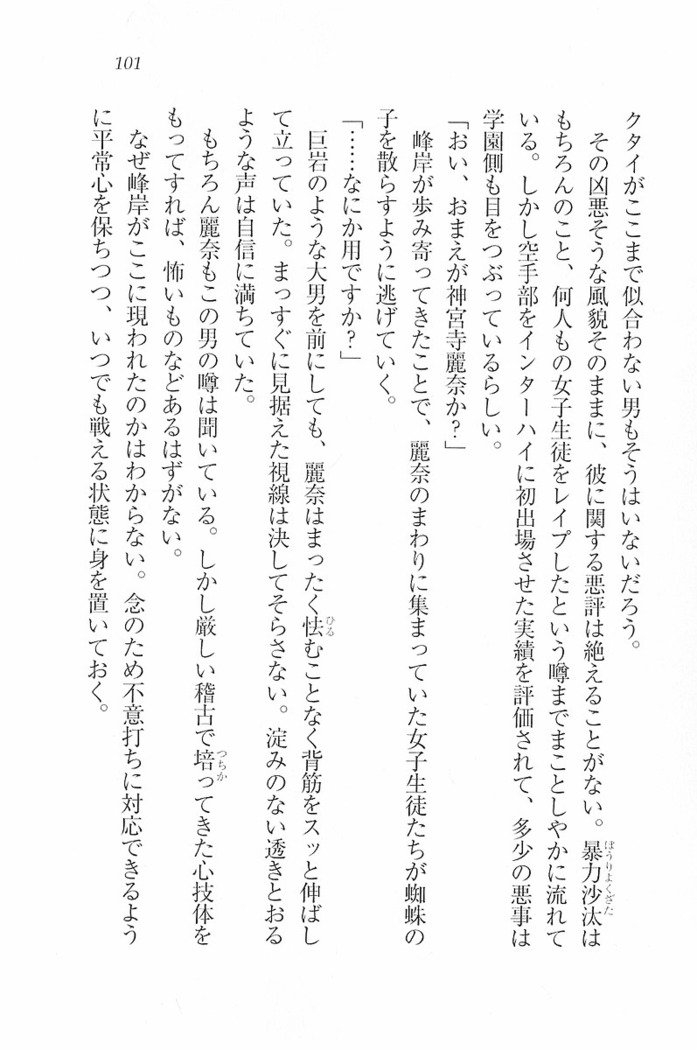 101
クタイがここまで似合わない男もそうはいないだろう。
その凶悪そうな風貌そのままに、彼に関する悪評は絶えることがない。暴力沙汰は
もちろんのこと、何人もの女子生徒をレイプしたという噂までまことしやかに流れて
いる。しかし空手部をインターハイに初出場させた実績を評価されて、多少の悪事は
学園側も目をつぶっているらしい。
「おい、おまえが神宮寺麗奈か?」
峰岸が歩み寄ってきたことで、麗奈のまわりに集まっていた女子生徒たちが蜘蛛の
子を散らすように逃げていく。
「……なにか用ですか?」
巨岩のような大男を前にしても、麗奈はまったく怯むことなく背筋をスッと伸ばし
て立っていた。まっすぐに見据えた視線は決してそらさない。淀みのない透きとおる
ような声は自信に満ちていた。
もちろん麗奈もこの男の噂は聞いている。しかし厳しい稽古で培ってきた心技体を
もってすれば、怖いものなどあるはずがない。
なぜ峰岸がここに現われたのかはわからない。念のため不意打ちに対応できるよう
に平常心を保ちつつ、いつでも戦える状態に身を置いておく。